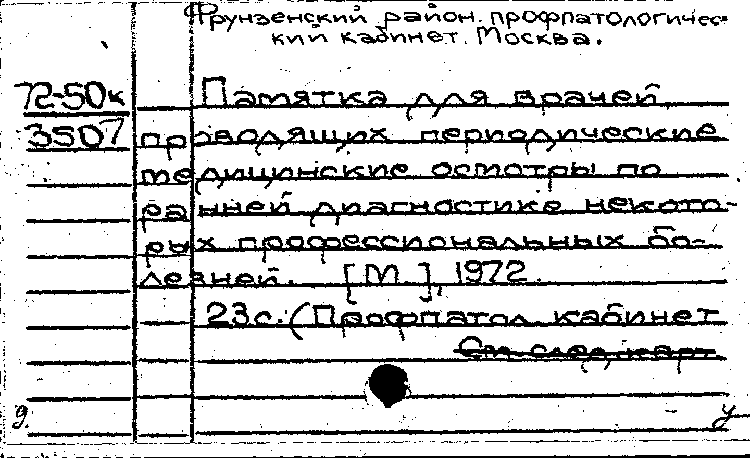 Фрунзенский район. профпатологичес-
кий кабинет. Москва.
72-50к
Памятка для врачей,
3507
проводящих периодические
медицинские осмотры по
ранней диагностике некото-
рых профессиональных бо-
лезней. [М.], 1972.
23с. (Профпатол. кабинет
См след, карт
д.
у